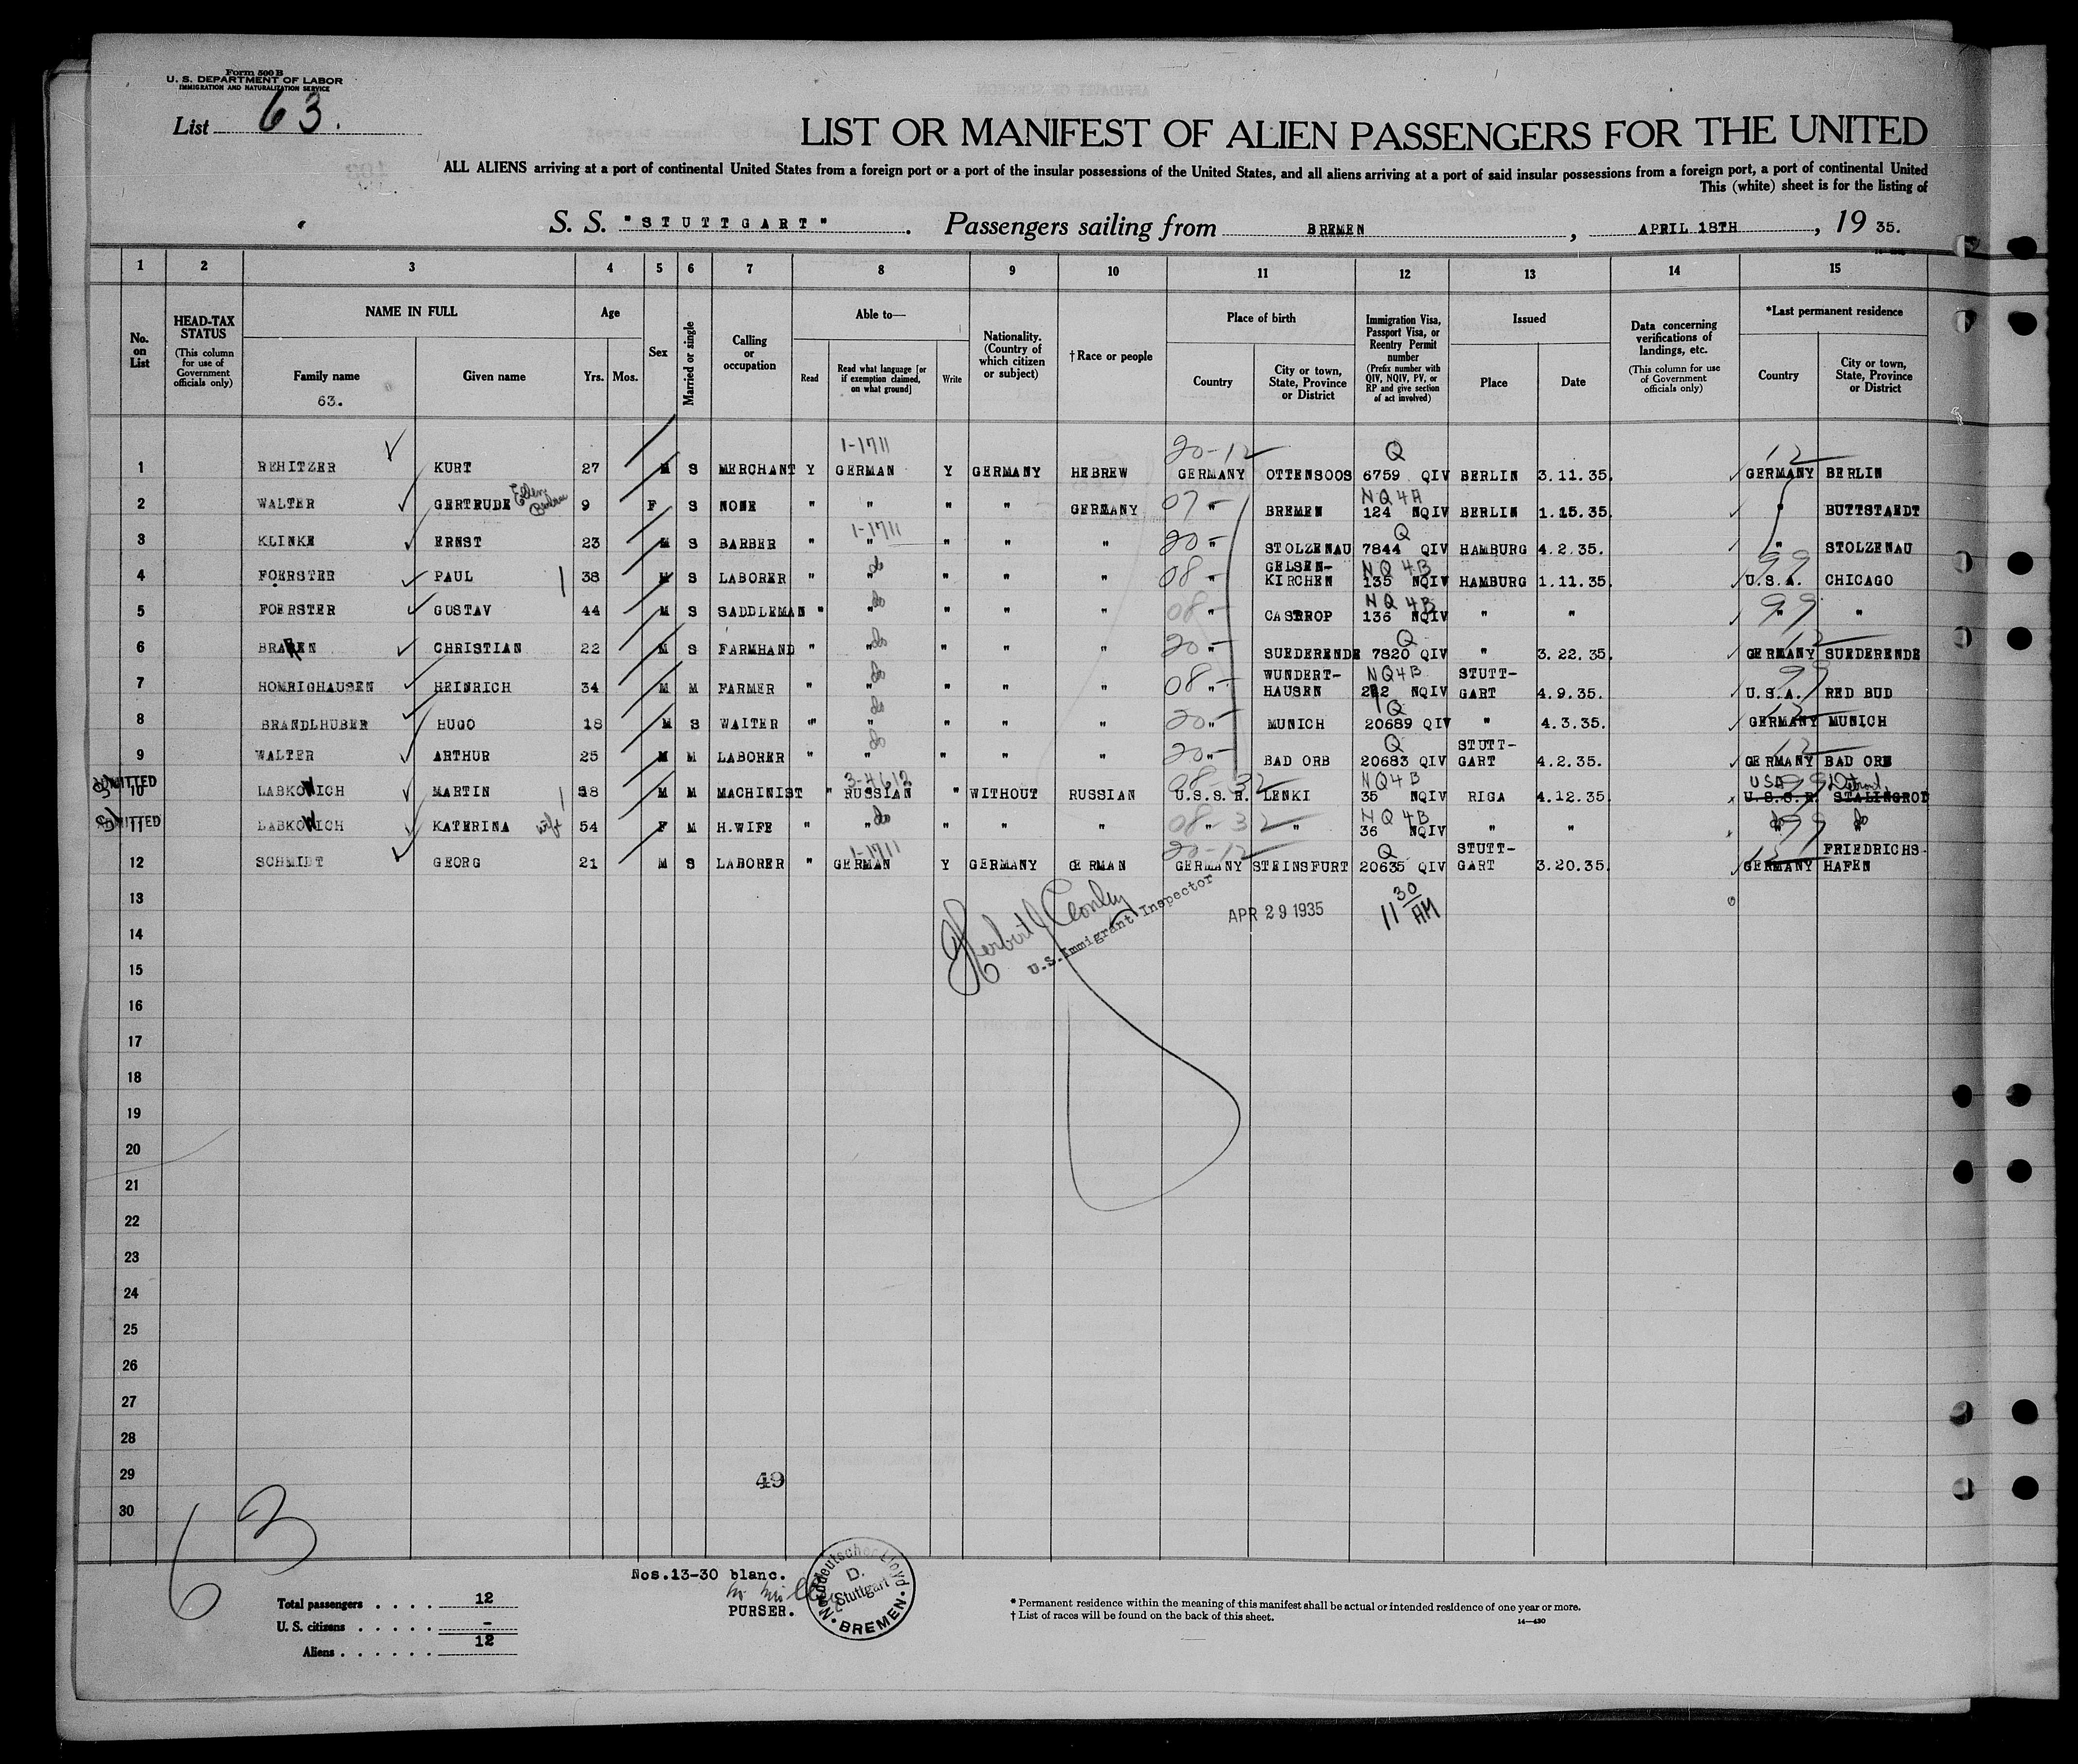 Form 500 B
U. S. DEPARTMENT OF LABOR
IMMIGRATION AND NATURALIZATION SERVICE
List 63.
LIST OR MANIFEST OF ALIEN PASSENGERS FOR THE UNITED
ALL ALIENS arriving at a port of continental United States from a foreign port or a port of the insular possessions of the United States, and all aliens arriving at a port of said insular possessions from a foreign port, a port of continental United
This (white) sheet is for the listing of
S. S. "STUTTGART". Passengers sailing from BREMEN, APRIL 18TH, 19 35.
1 2 3 4 5 6 7 8 9 10 11 12 13 14 15
No. on List
HEAD-TAX STATUS (This column for use of Government officials only)
NAME IN FULL
Family name
63.
Given name
Age
Yrs. Mos.
Sex
Married or single
Calling or occupation
Able to—
Read
Read what language [or if exemption claimed, on what ground]
Write
Nationality. (Country of which citizen or subject)
† Race or people
Place of birth
Country
City or town, State, Province or District
Immigration Visa, Passport Visa, or Reentry Permit number (Prefix number with QIV, NQIV, PV, or RP and give section of act involved)
Issued
Place
Date
Data concerning verifications of landings, etc. (This column for use of Government officials only)
*Last permanent residence
Country
City or town, State, Province or District
1-1711 20-12 Q 12
1 REHITZER KURT 27 M S MERCHANT Y GERMAN Y GERMANY HEBREW GERMANY OTTENSOOS 6759 QIV BERLIN 3.11.35. GERMANY BERLIN
NQ4A
2 WALTER GERTRUDE 9 F S NONE " " " " GERMANY 07- " BREMEN 124 NQIV BERLIN 1.15.35. " BUTTSTAEDT
1-1711 Q
3 KLINKE ERNST 23 M S BARBER " " " " " 20- " STOLZENAU 7844 QIV HAMBURG 4.2.35. " STOLZENAU
do GELSEN- NQ 4B 99
4 FOERSTER PAUL 38 M S LABORER " " " " " 08- " KIRCHEN 135 NQIV HAMBURG 1.11.35. U.S.A. CHICAGO
do NQ 4B 99
5 FOERSTER GUSTAV 44 M S SADDLEMAN " " " " " 08- " CASTROP 136 NQIV " " " "
do Q 12
6 BRAREN CHRISTIAN 22 M S FARMHAND " " " " " 20- " SUEDERENDE 7820 QIV " 3.22.35. GERMANY SUEDERENDE
do WUNDERT- NQ4B STUTT- 99
7 HOMRIGHAUSEN HEINRICH 34 M M FARMER " " " " " 08- " HAUSEN 212 NQIV GART 4.9.35. U.S.A. RED BUD
do Q 12
8 BRANDLHUBER HUGO 18 M S WAITER " " " " " 20- " MUNICH 20689 QIV " 4.3.35. GERMANY MUNICH
do Q STUTT- 12
9 WALTER ARTHUR 25 M M LABORER " " " " " 20- " BAD ORB 20683 QIV GART 4.2.35. GERMANY BAD ORB
ADMITTED 3-4612 08-32 NQ4B USA 99 Detroit
10 LABKOWICH MARTIN 38 M M MACHINIST " RUSSIAN " WITHOUT RUSSIAN U.S.S.R. LENKI 35 NQIV RIGA 4.12.35. U.S.S.R. STALINGROD
ADMITTED wife do 08-32 NQ4B do 99 do
11 LABKOWICH KATERINA 54 F M H.WIFE " " " " " " 36 NQIV " " " "
1-1711 20-12 Q STUTT- 12 FRIEDRICHS-
12 SCHMIDT GEORG 21 M S LABORER " GERMAN Y GERMANY GERMAN GERMANY STEINSFURT 20635 QIV GART 3.20.35. GERMANY HAFEN
13
Herbert J Conley
U.S. Immigrant Inspector
APR 29 1935
11 30/AM
14
15
16
17
18
19
20
21
22
23
24
25
26
27
28
29
49
30
63
Nos.13-30 blanc.
PURSER.
Norddeutscher Lloyd
D. Stuttgart
BREMEN
Total passengers . . . . 12
U. S. citizens . . . . . -
Aliens . . . . . . 12
* Permanent residence within the meaning of this manifest shall be actual or intended residence of one year or more.
† List of races will be found on the back of this sheet.
14—430